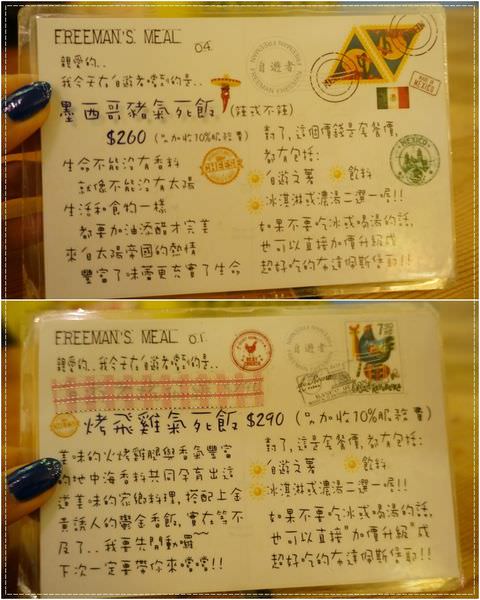 FREEMAN'S MEAL 04.
親愛的..
我今天在自遊者嚐到的是..
墨西哥豬氣死飯 (豬式不豬)
$260 (另加收10%服務費)
生命不能沒有香料
就像不能沒有太陽
生活和食物一樣
都要加油添醋才完美
來自太陽帝國的熱情
豐富了味蕾更充實了生命
對了,這個價錢是套餐價,
都有包括:
自遊之薯 飲料
冰淇淋或濃湯二選一喔!!
如果不要吃冰或喝湯的話,
也可以直接加價升級成
超好吃的布達佩斯堡耶!!
自遊者
MADE IN MEXICO
MEXICO
FREEMAN'S MEAL 01.
親愛的..我今天在自遊者嚐到的是..
烤飛雞氣死飯 $290 (另加收10%服務費)
美味的火烤雞腿與香氣豐富
的地中海香料共同孕育出這
道美味的家鄉料理,搭配上金
黃誘人的鬱金香飯,實在等不
及了..我要先開動囉~~
下次一定要帶你來嚐嚐!!
對了,這是套餐價,都有包括:
自遊之薯 飲料
冰淇淋或濃湯二選一喔!!
如果不要吃冰或喝湯的話,
也可以直接"加價升級"成
超好吃的布達佩斯堡耶!!
自遊者